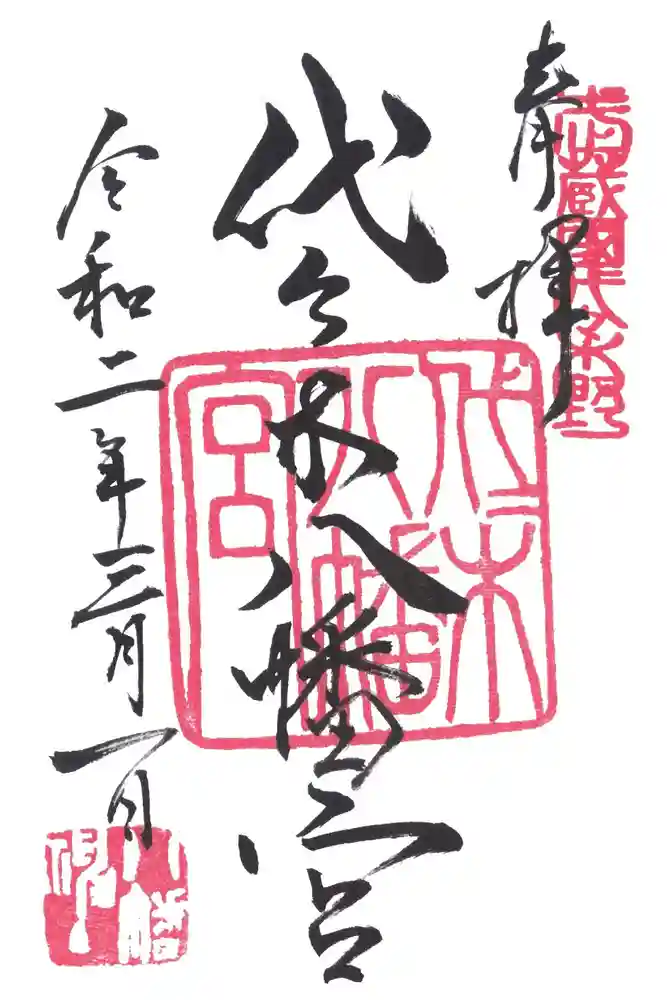 奉拝
武蔵國代々木野
代々木八幡宮
代々木
八幡
宮
令和二年三月一日
八幡